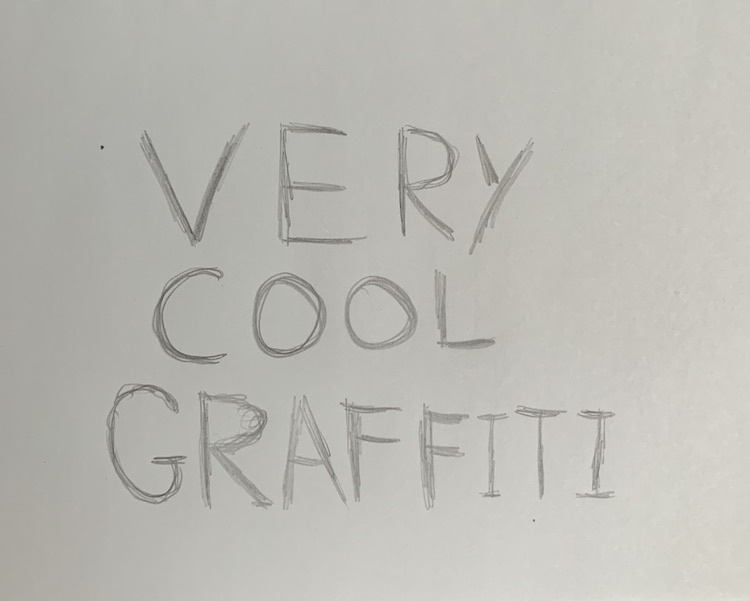 VERY
COOL
GRAFFITI